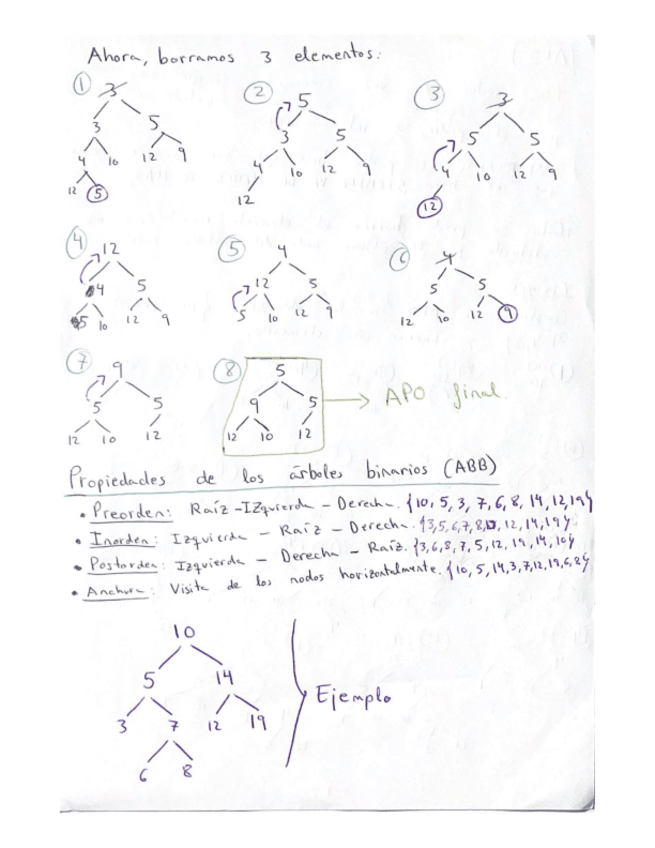 Ahora, borramos 3 elementos:
1 2 3
3 5 3
3 5 3 5 5 5
4 10 12 9 4 10 12 9 4 10 12 9
12 5 12 12
4 5 6
12 4 4
4 5 12 5 5 5
5 10 12 9 5 10 12 9 12 10 12 9
7 8
9 5
5 5 9 5 APO final.
12 10 12 12 10 12
Propiedades de los árboles binarios (ABB)
• Preorden: Raíz-IZquierda - Derecha. {10, 5, 3, 7, 6, 8, 14, 12, 19}
• Inorden: Izquierda - Raíz - Derecha. {3,5,6,7,8,10,12,14,19}
• Postorden: Izquierda - Derecha - Raíz. {3,6,8,7,5,12,19,14,10}
• Anchura: Visita de los nodos horizontalmente. {10,5,14,3,7,12,19,6,8}
10
5 14
3 7 12 19
6 8
Ejemplo